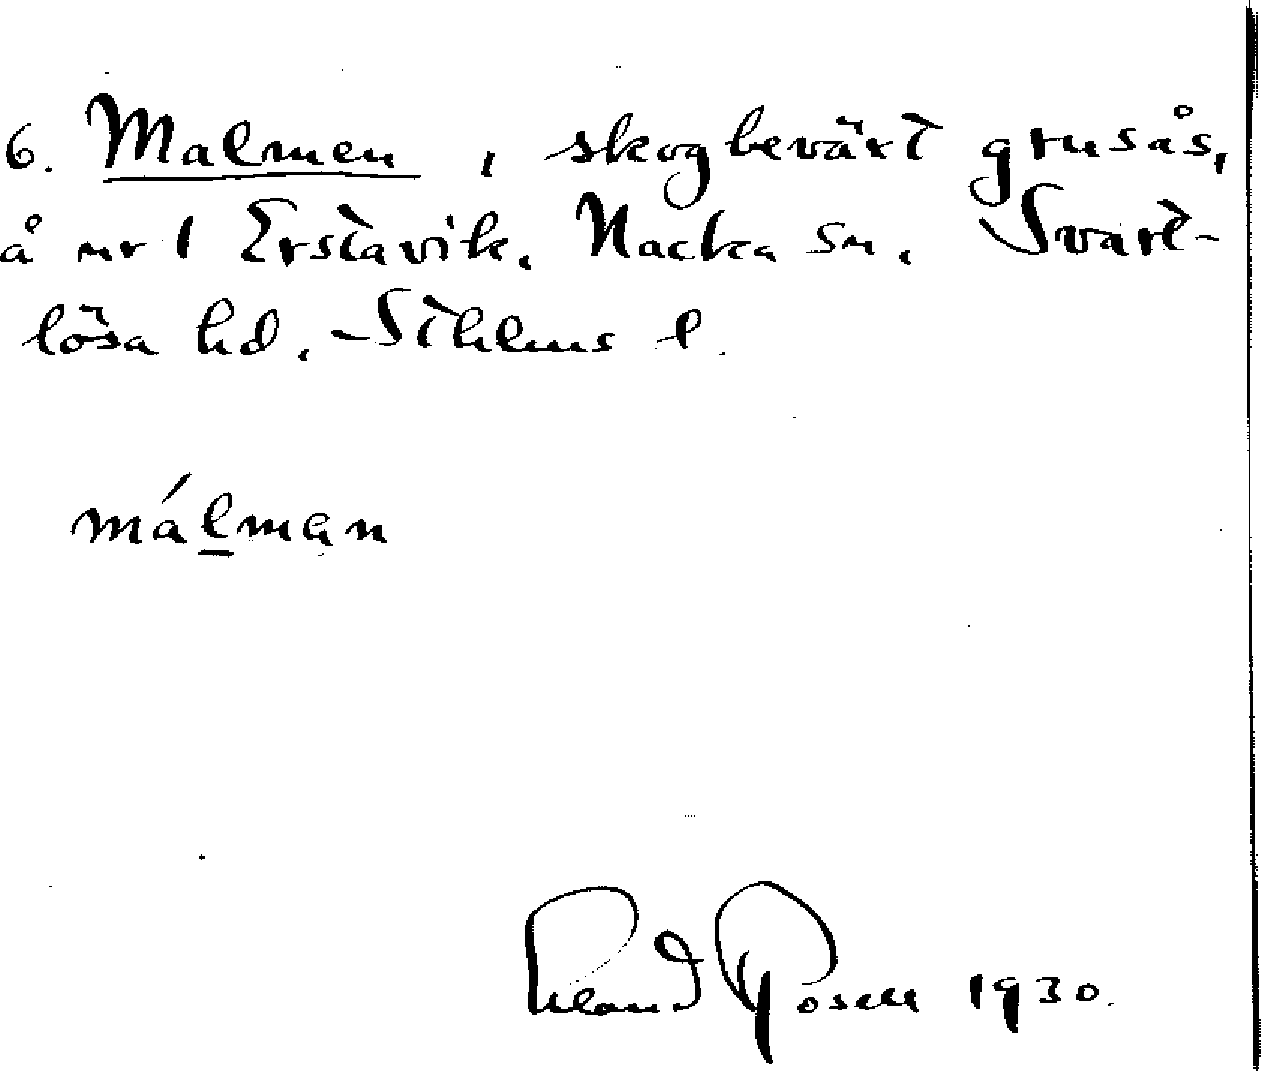 6. Malmen, skogbevärt grusås,
å nr 1 Erstavik. Nacka sn. Svart-
lösa hd. Sthlms l.
málman
Rosell 1930.